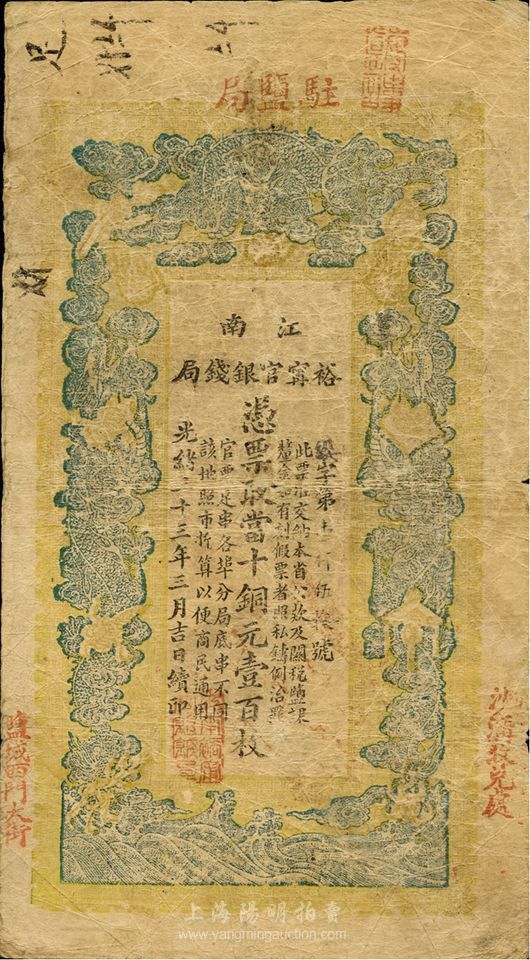 駐鹽局
江南
裕寧官銀錢局
字第
號
此票准交納本省公款及關稅鹽課
釐金如有刻假票者照私鑄例治罪
憑票取當十銅元壹百枚
官票足串各埠分局底串不同
該地照市折算以便商民通用
光緒三十三年三月吉日續印
鹽城西門大街
上海陽明拍賣
www.yangmingauction.com